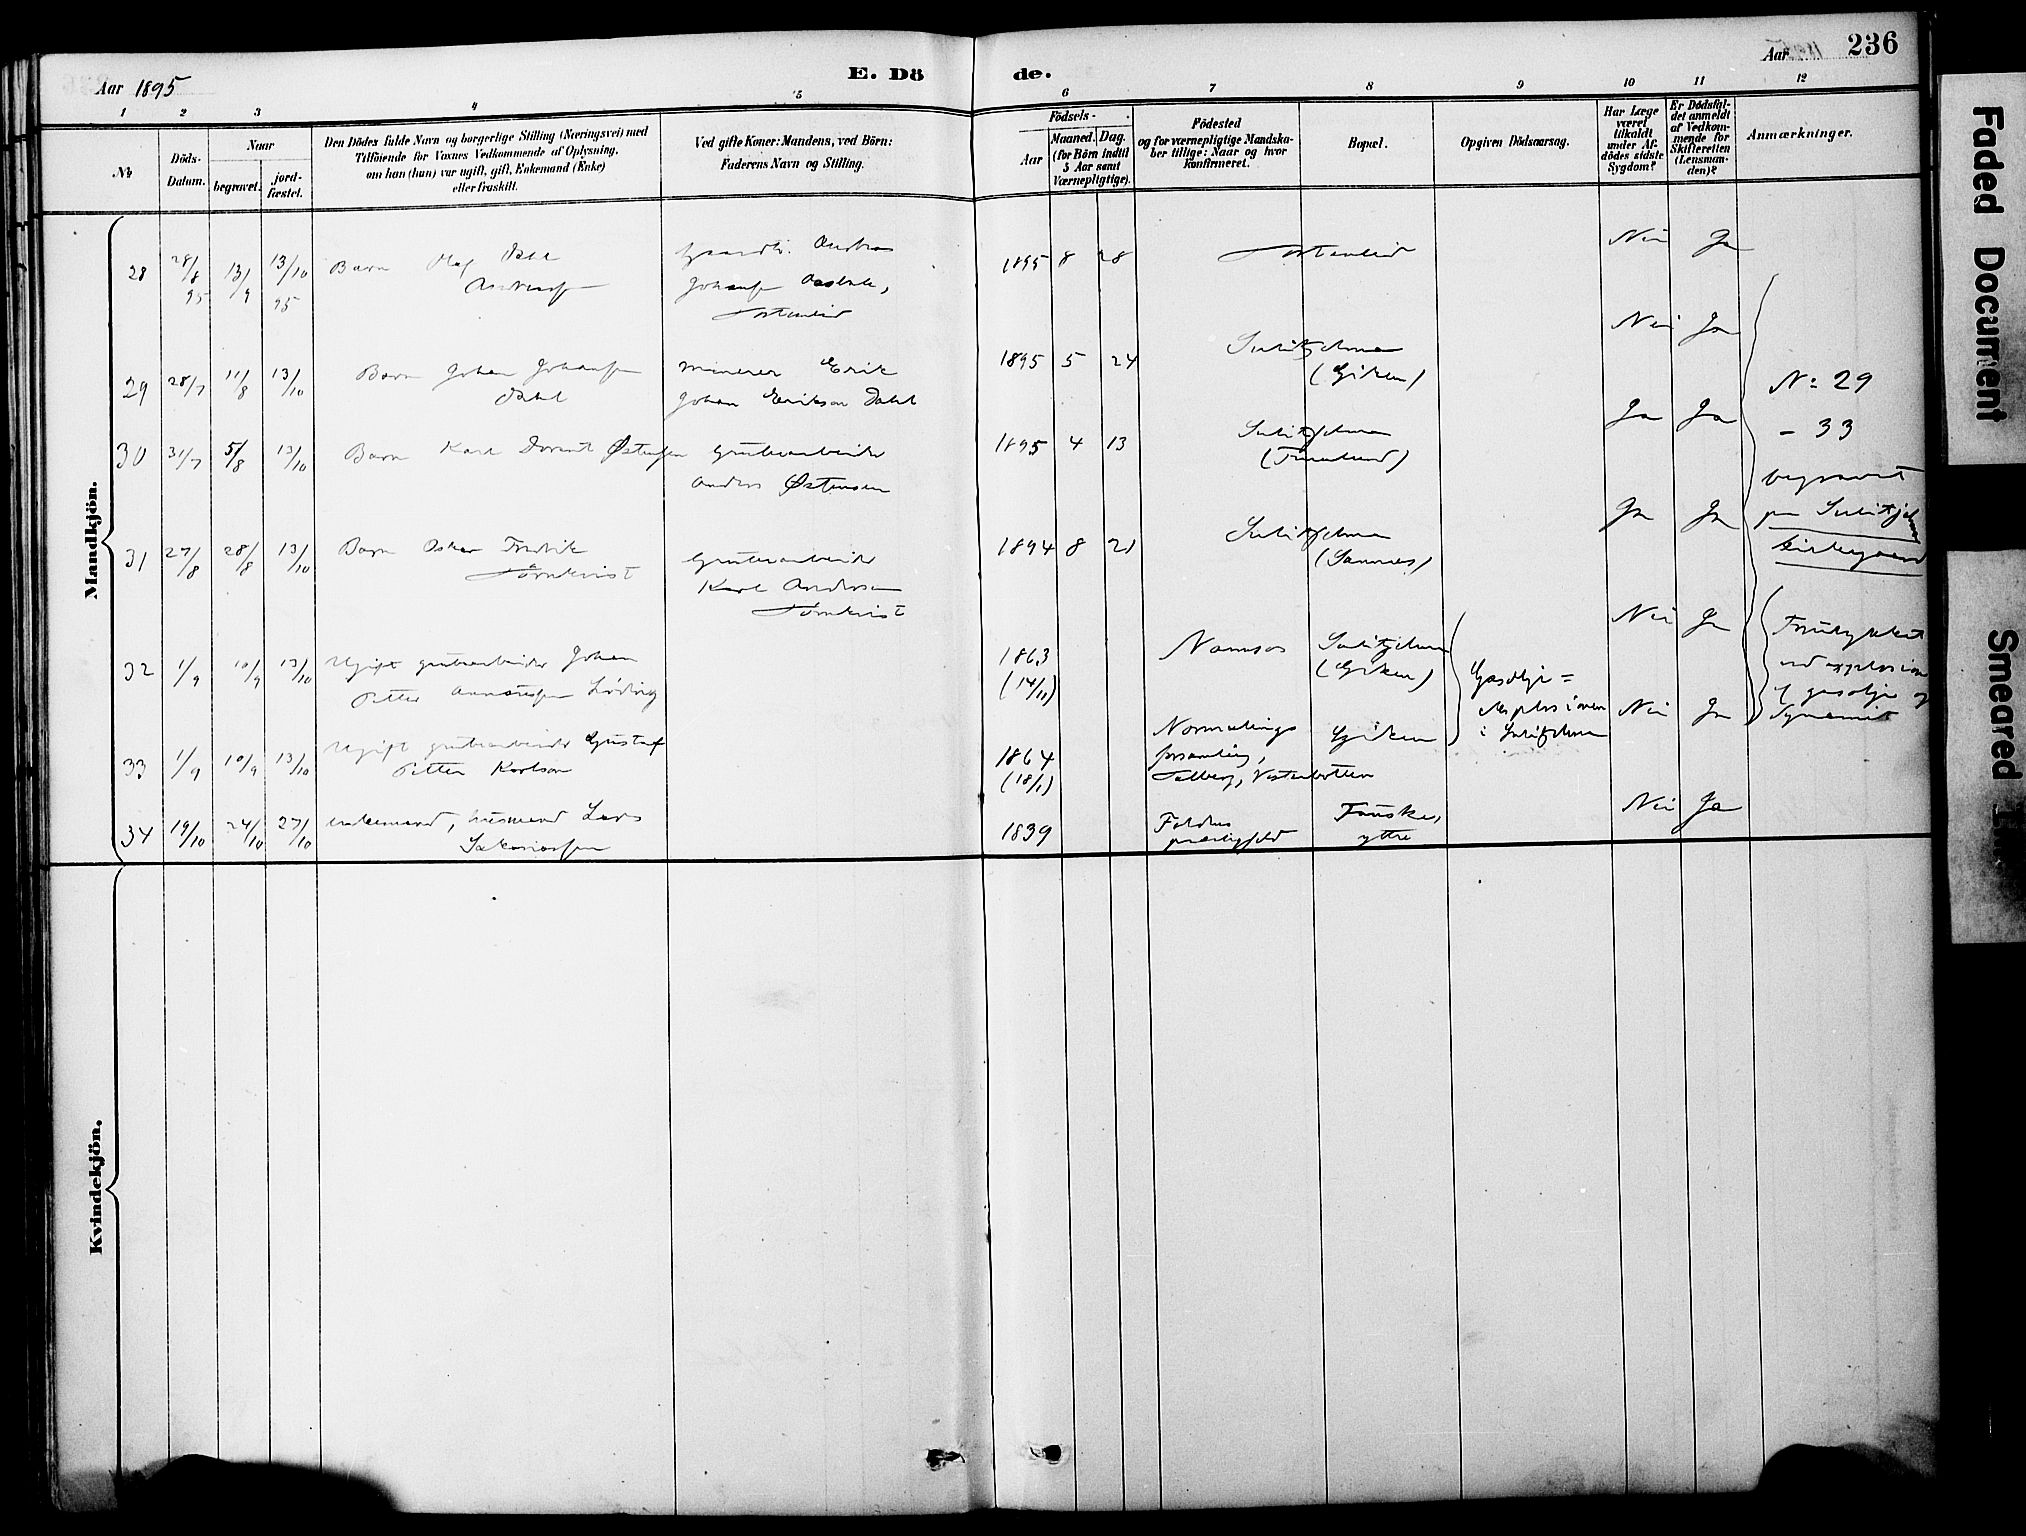 236
Aar 1895
E. Dö
de.
Aar
1 2 3 4 5 6 7 8 9 10 11 12
№
Döds-
Datum.
Naar
begravet.
jord-
fæstet.
Den Dödes fulde Navn og borgerlige Stilling (Næringsvei) med
Tilföiende for Voxnes Vedkommende af Oplysning,
om han (hun) var ugift, gift, Enkemand (Enke)
eller fraskilt.
Ved gifte Koner: Mandens, ved Börn:
Faderens Navn og Stilling.
Födsels-
Aar
Maaned.
Dag.
(for Börn indtil
5 Aar samt
Værnepligtige).
Födested
og for værnepligtige Mandska-
ber tillige: Naar og hvor
konfirmeret.
Bopæl.
Opgiven Dödsaarsag.
Har Læge
været
tilkaldt
under Af-
dödes sidste
Sygdom?
Er Dödsfal-
det anmeldt
af Vedkom-
mende for
Skifteretten
(Lensman-
den)?
Anmærkninger.
Mandkjön.
28 28/8 95 13/9 13/10 95 Barn Olaf
1895 8 28 Nei Ja
29 28/7 11/8 13/10 Barn Johan Johansen
Dahl
minerer Erik
Johan Erikson Dahl
1895 5 24 Sulitjelma
(Giken) Nei Ja
30 31/7 5/8 13/10 Barn Karl Østensen
Grubearbeider
Anders Østensen
1895 4 13 Sulitjelma
(Furulund) Ja Ja
31 27/8 28/8 13/10 Barn Oskar Fredrik
Törnkvist
Grubearbeider
Karl Anderson
Törnkvist
1894 8 21 Sulitjelma
(Sannes) Ja Ja
№ 29
- 33
begravet
paa Sulitjelma
kirkegaard
32 1/9 10/9 13/10 Ugift grubearbeider Johan
Petter
1863
(14/11) Namsos Sulitjelma
(Giken) Nei Ja
33 1/9 10/9 13/10 Ugift grubearbeider Gustaf
Petter Karlson
1864
(18/1) Normalings
forsamling,
Vesterbotten Giken Nei Ja
Gasolje=
explosionen
i Sulitjelma
Forulykket
ved explosion
af gasolje og
Dynamit
34 19/10 24/10 27/10 enkemand, husmand Lars
Sakariassen
1839 Foldens
præstegjeld Fauske,
ytre Nei Ja
Kvindekjön.
Faded Document
Smeared